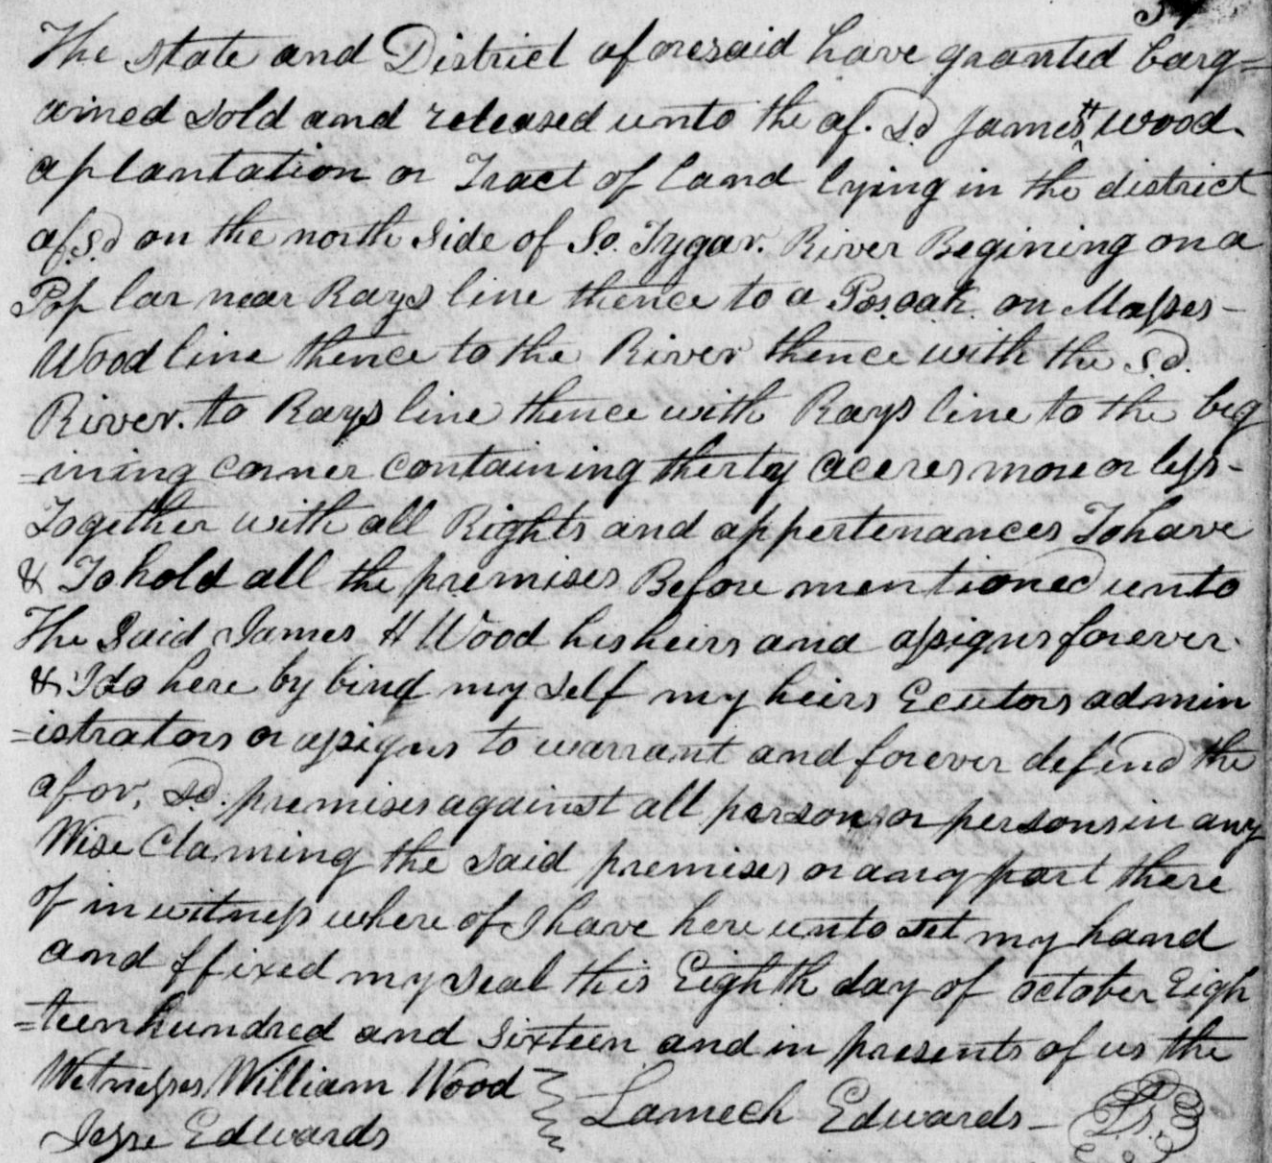 The State and District aforesaid have granted barg=
ained sold and released unto the af. Sd James H Wood.
a plantation or Tract of land lying in the district
af. Sd on the north Side of So. Tygar. River Begining on a
Poplar near Rays line thence to a Pos. oak. on Masses-
Wood line thence to the River thence with the Sd.
River. to Rays line thence with Rays line to the beg
=ining corner containing therty aceres more or less-
Together with all Rights and appertenances To have
& To hold all the premises Before mentioned unto
The Said James H Wood his heirs and assigns forever.
& I do here by bind my self my heirs Ecutors admin
=istrators or assigns to warrant and forever defend the
afor, Sd. premises against all person or persons in any
Wise Claming the said premises or any part there
of in witness where of I have here unto set my hand
and ffixed my seal this Eighth day of october Eigh
=teen hundred and Sixteen and in presents of us the
Witnesses William Wood Lamech Edwards - L.S.
Jesse Edwards